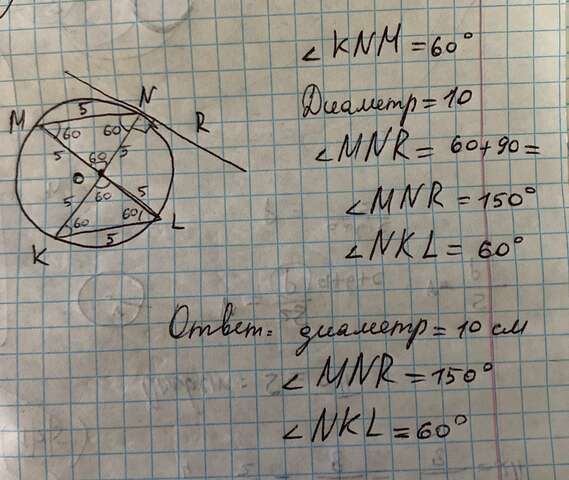 ∠KNM = 60°
Диаметр = 10
∠MNR = 60+90 =
∠MNR = 150°
∠NKL = 60°
Ответ: диаметр = 10 см
∠MNR = 150°
∠NKL = 60°
M
5
N
R
60
60
5
60
5
O
60
5
5
60
60
L
K
5